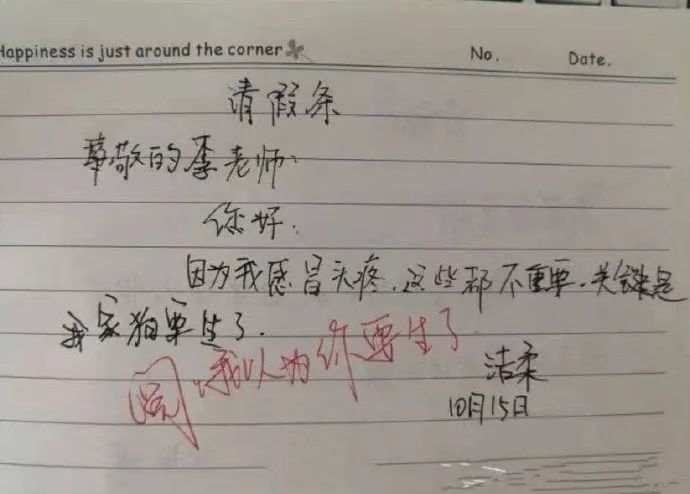 Happiness is just around the corner
No.
Date.
请假条
尊敬的李老师:
你好:
因为我感冒头疼,这些都不重要.关键是
我家狗要生了.
我以为你要生了
洁柔
10月15日